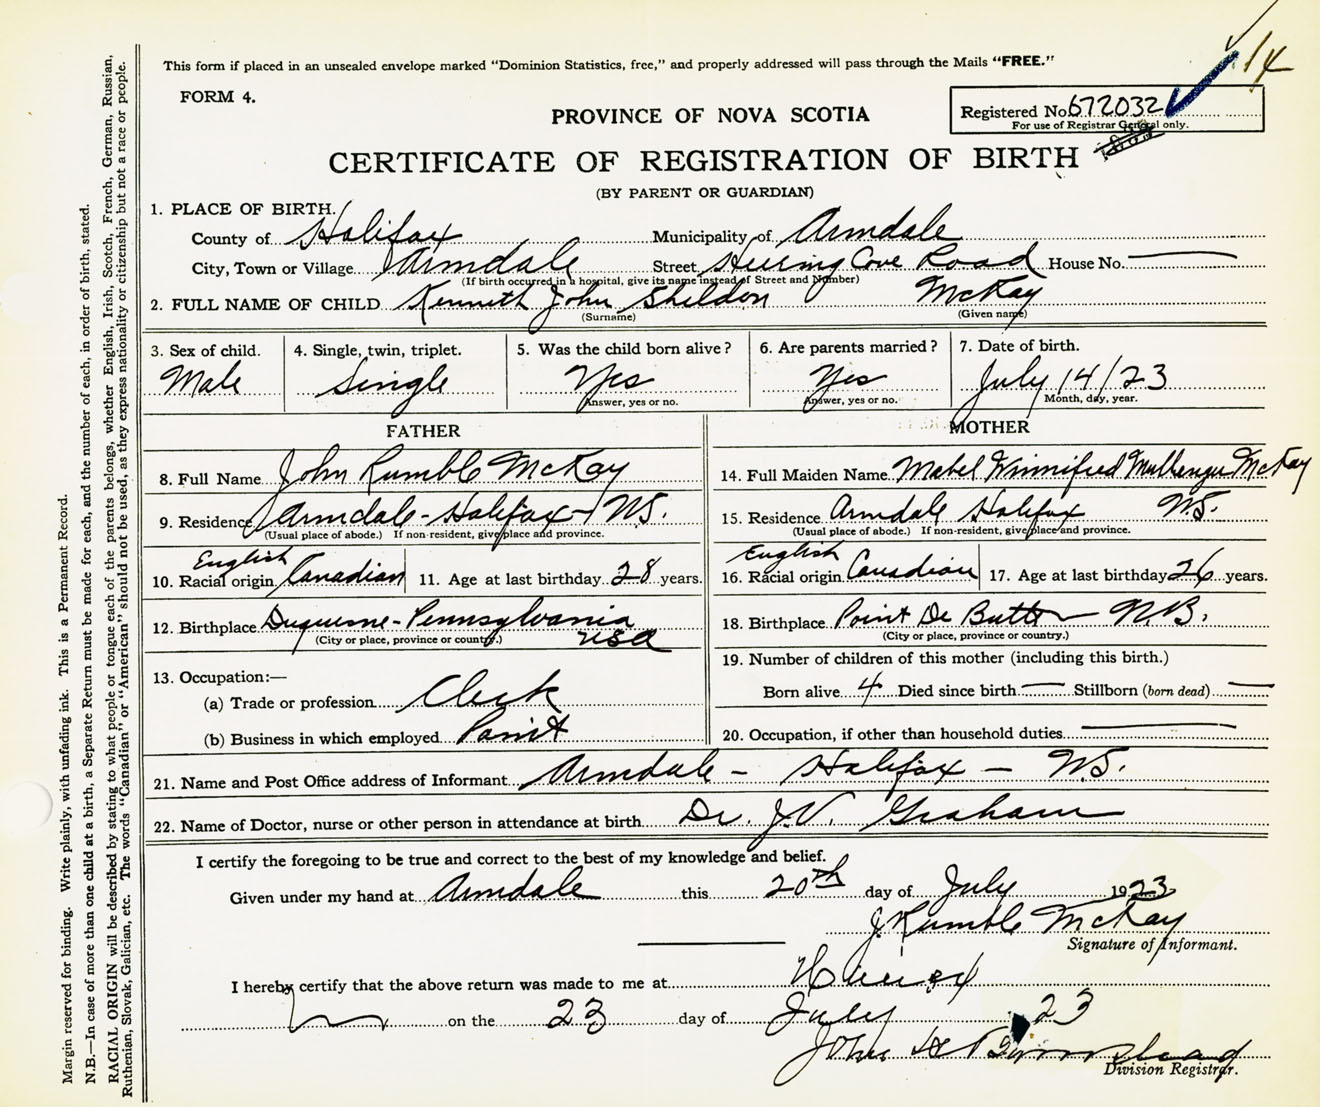 This form if placed in an unsealed envelope marked "Dominion Statistics, free," and properly addressed will pass through the Mails "FREE."
14
FORM 4.
Registered No. 672032
PROVINCE OF NOVA SCOTIA
For use of Registrar General only.
CERTIFICATE OF REGISTRATION OF BIRTH
(BY PARENT OR GUARDIAN)
1. PLACE OF BIRTH.
County of Halifax Municipality of Armdale
City, Town or Village Armdale Street Herring Cove Road House No. —
(If birth occurred in a hospital, give its name instead of Street and Number)
2. FULL NAME OF CHILD Kenneth John Sheldon McKay
(Surname) (Given name)
3. Sex of child. 4. Single, twin, triplet. 5. Was the child born alive? 6. Are parents married? 7. Date of birth.
Male Single Yes Yes July 14/23
Answer, yes or no. Answer, yes or no. Month, day, year.
FATHER MOTHER
8. Full Name John Rumble McKay
14. Full Maiden Name Mabel Winnifred McKay
9. Residence Armdale - Halifax - N.S.
15. Residence Armdale Halifax N.S.
(Usual place of abode.) If non-resident, give place and province.
(Usual place of abode.) If non-resident, give place and province.
English
10. Racial origin Canadian 11. Age at last birthday 28 years.
English
16. Racial origin Canadian 17. Age at last birthday 26 years.
12. Birthplace Duquesne - Pennsylvania
(City or place, province or country.) USA
18. Birthplace Point De Bute N.B.
(City or place, province or country.)
13. Occupation:—
19. Number of children of this mother (including this birth.)
(a) Trade or profession Clerk
Born alive 4 Died since birth — Stillborn (born dead) —
(b) Business in which employed Paint
20. Occupation, if other than household duties —
21. Name and Post Office address of Informant Armdale - Halifax - N.S.
22. Name of Doctor, nurse or other person in attendance at birth Dr. J.V. Graham
I certify the foregoing to be true and correct to the best of my knowledge and belief.
Given under my hand at Armdale this 20th day of July 1923
J. Rumble McKay
Signature of Informant.
I hereby certify that the above return was made to me at
on the 23 day of July 23
John
Division Registrar.
Margin reserved for binding. Write plainly, with unfading ink. This is a Permanent Record.
N.B.—In case of more than one child at a birth, a Separate Return must be made for each, and the number of each, in order of birth, stated.
RACIAL ORIGIN will be described by stating to what people or tongue each of the parents belongs, whether English, Irish, Scotch, French, German, Russian,
Ruthenian, Slovak, Galician, etc. The words "Canadian" or "American" should not be used, as they express nationality or citizenship but not a race or people.